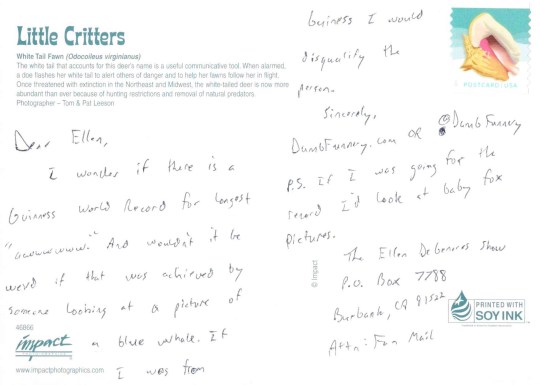 Little Critters
White Tail Fawn (Odocoileus virginianus)
The white tail that accounts for this deer's name is a useful communicative tool. When alarmed,
a doe flashes her white tail to alert others of danger and to help her fawns follow her in flight.
Once threatened with extinction in the Northeast and Midwest, the white-tailed deer is now more
abundant than ever because of hunting restrictions and removal of natural predators.
Photographer – Tom & Pat Leeson
Dear Ellen,
I wonder if there is a
Guinness World Record for longest
"awwwwwww." And wouldn't it be
weird if that was achieved by
someone looking at a picture of
a blue whale. If
I was from
46866
impact
www.impactphotographics.com
Guiness I would
disqualify the
person.
Sincerely,
DumbFunnery.com OR @DumbFunnery
P.S. If I was going for the
record I'd look at baby fox
pictures.
© Impact
The Ellen DeGeneres Show
P.O. Box 7788
Burbank, CA 91522
Attn: Fan Mail
POSTCARD/USA
PRINTED WITH
SOY INK